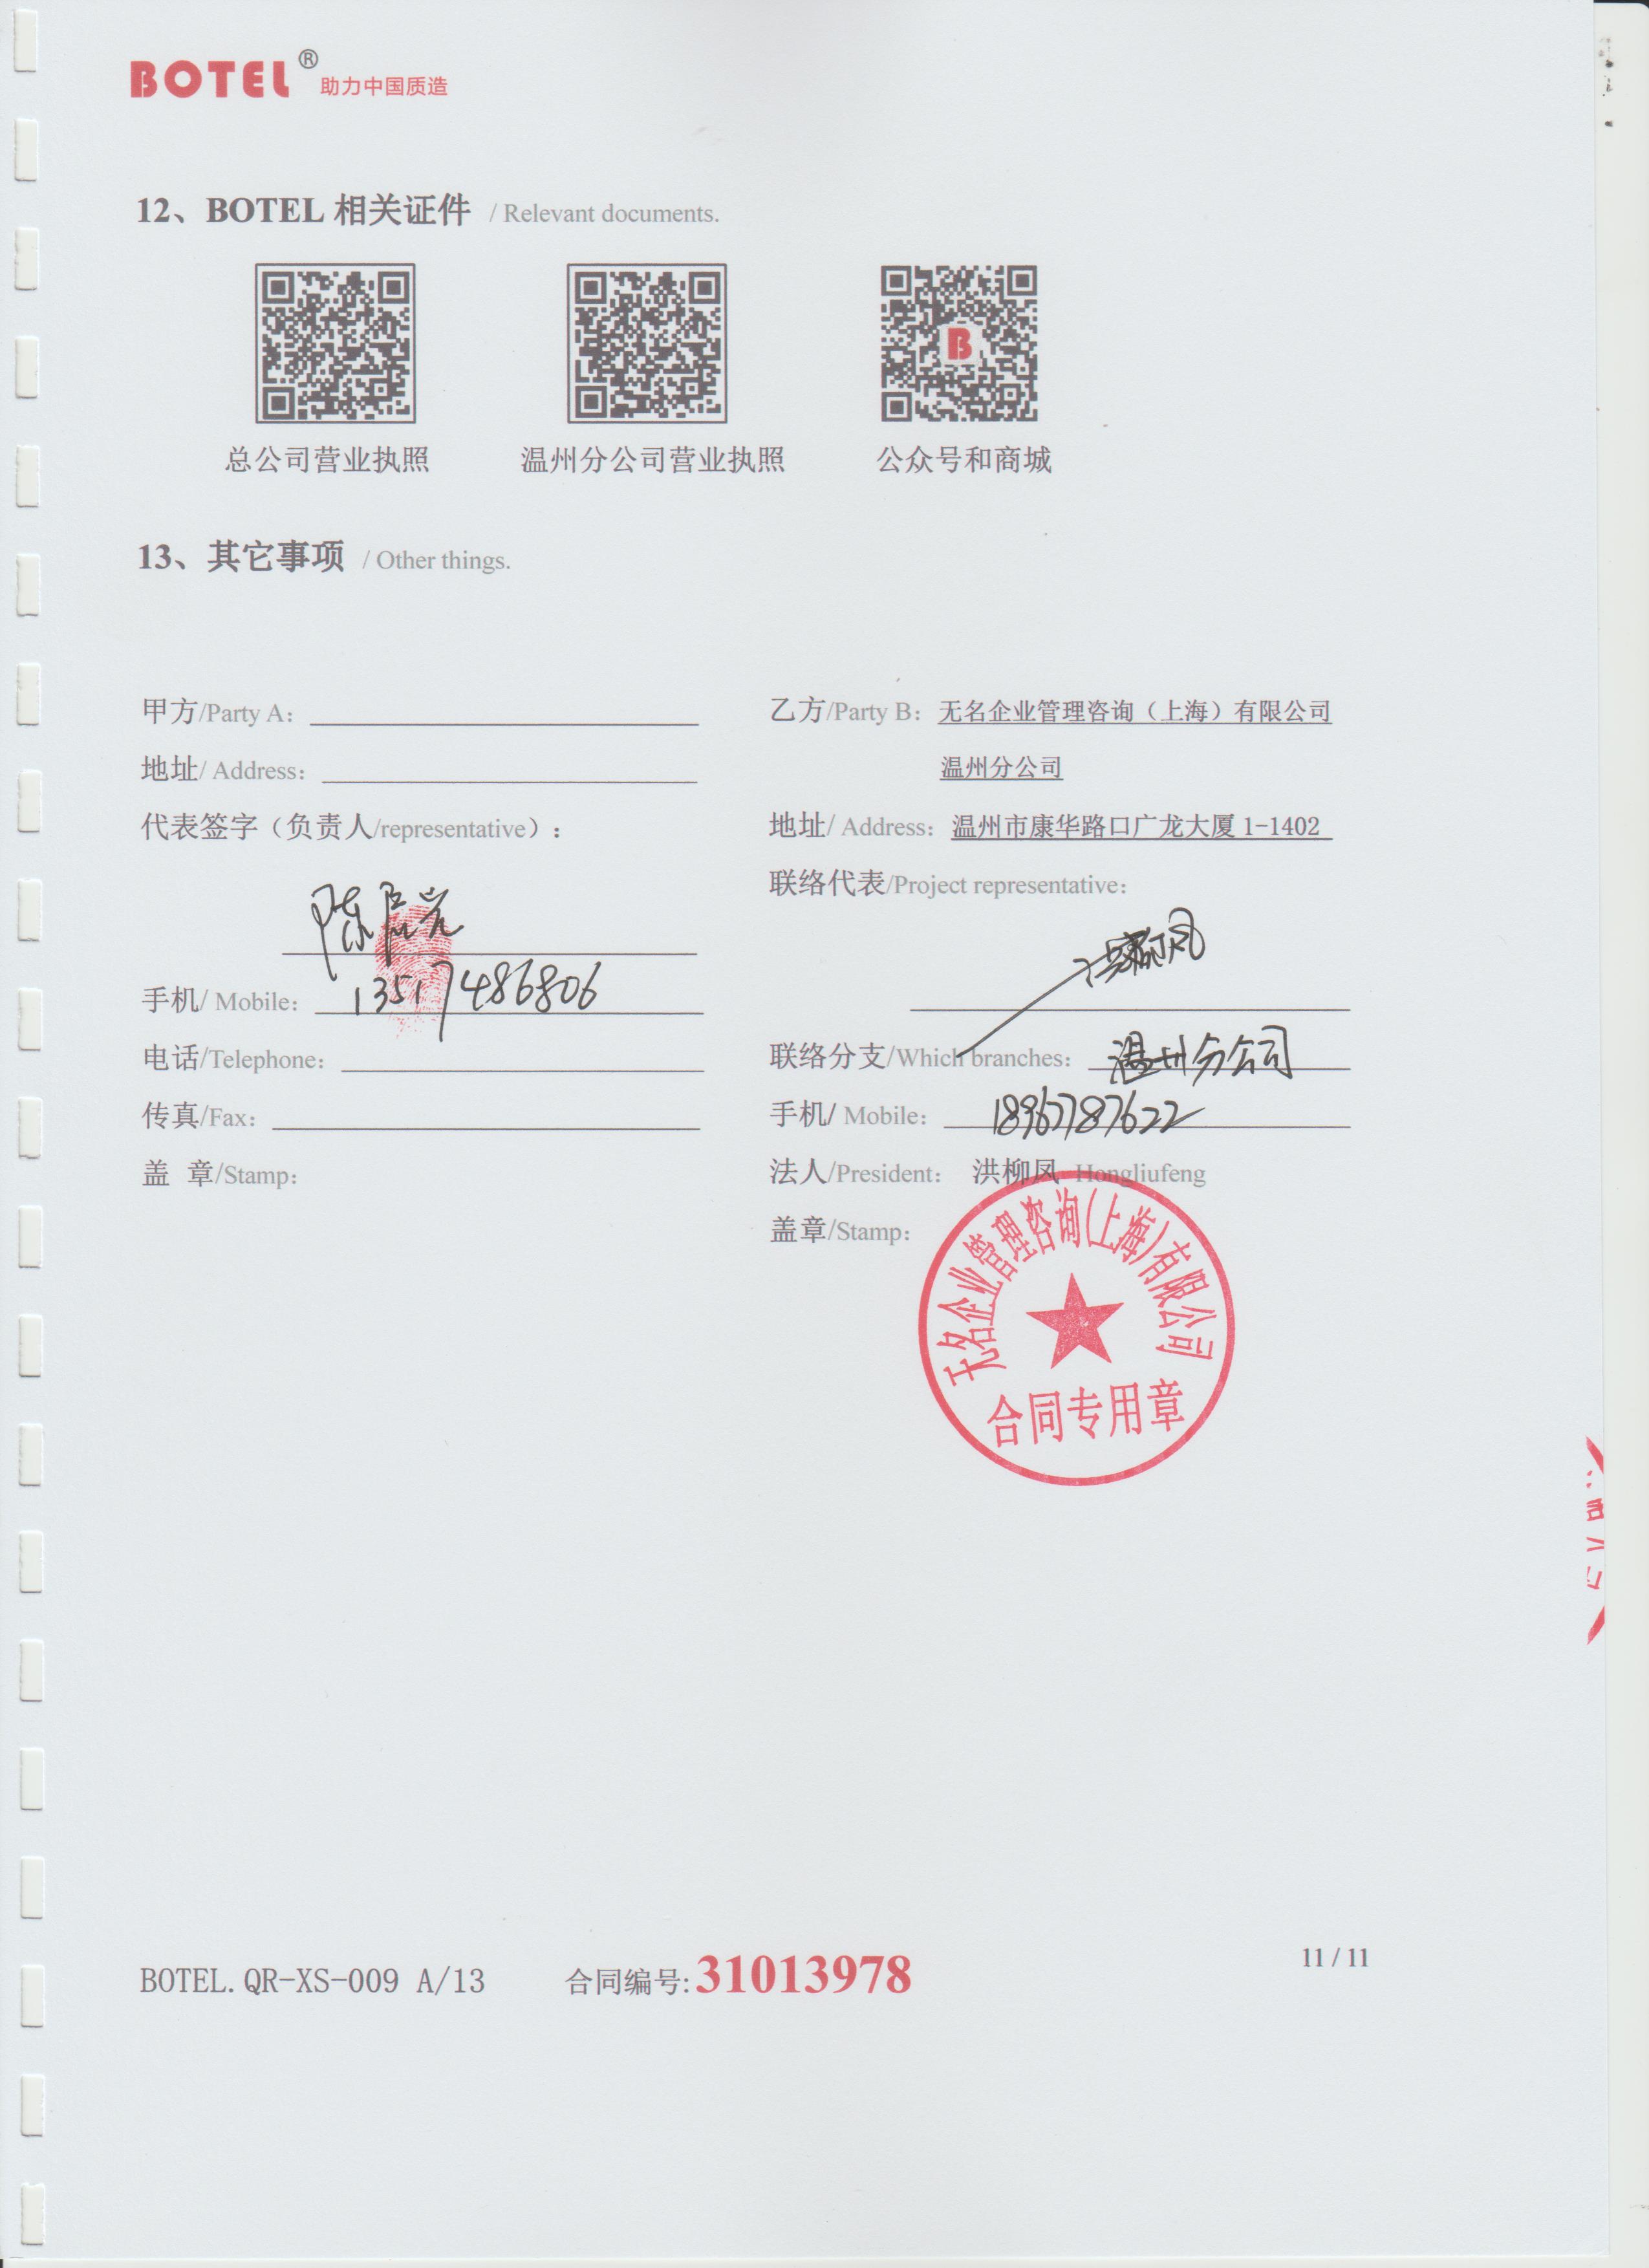 BOTEL® 助力中国质造
12、BOTEL 相关证件 / Relevant documents.
B
总公司营业执照 温州分公司营业执照 公众号和商城
13、其它事项 / Other things.
甲方/Party A：
地址/ Address：
代表签字（负责人/representative）：
13517486806
手机/ Mobile：
电话/Telephone：
传真/Fax：
盖 章/Stamp：
乙方/Party B：无名企业管理咨询（上海）有限公司
温州分公司
地址/ Address：温州市康华路口广龙大厦 1-1402
联络代表/Project representative：
联络分支/Which branches：温州分公司
手机/ Mobile：18967787622
法人/President： 洪柳凤 Hongliufeng
盖章/Stamp：
无名企业管理咨询(上海)有限公司
合同专用章
BOTEL.QR-XS-009 A/13 合同编号:31013978
11 / 11